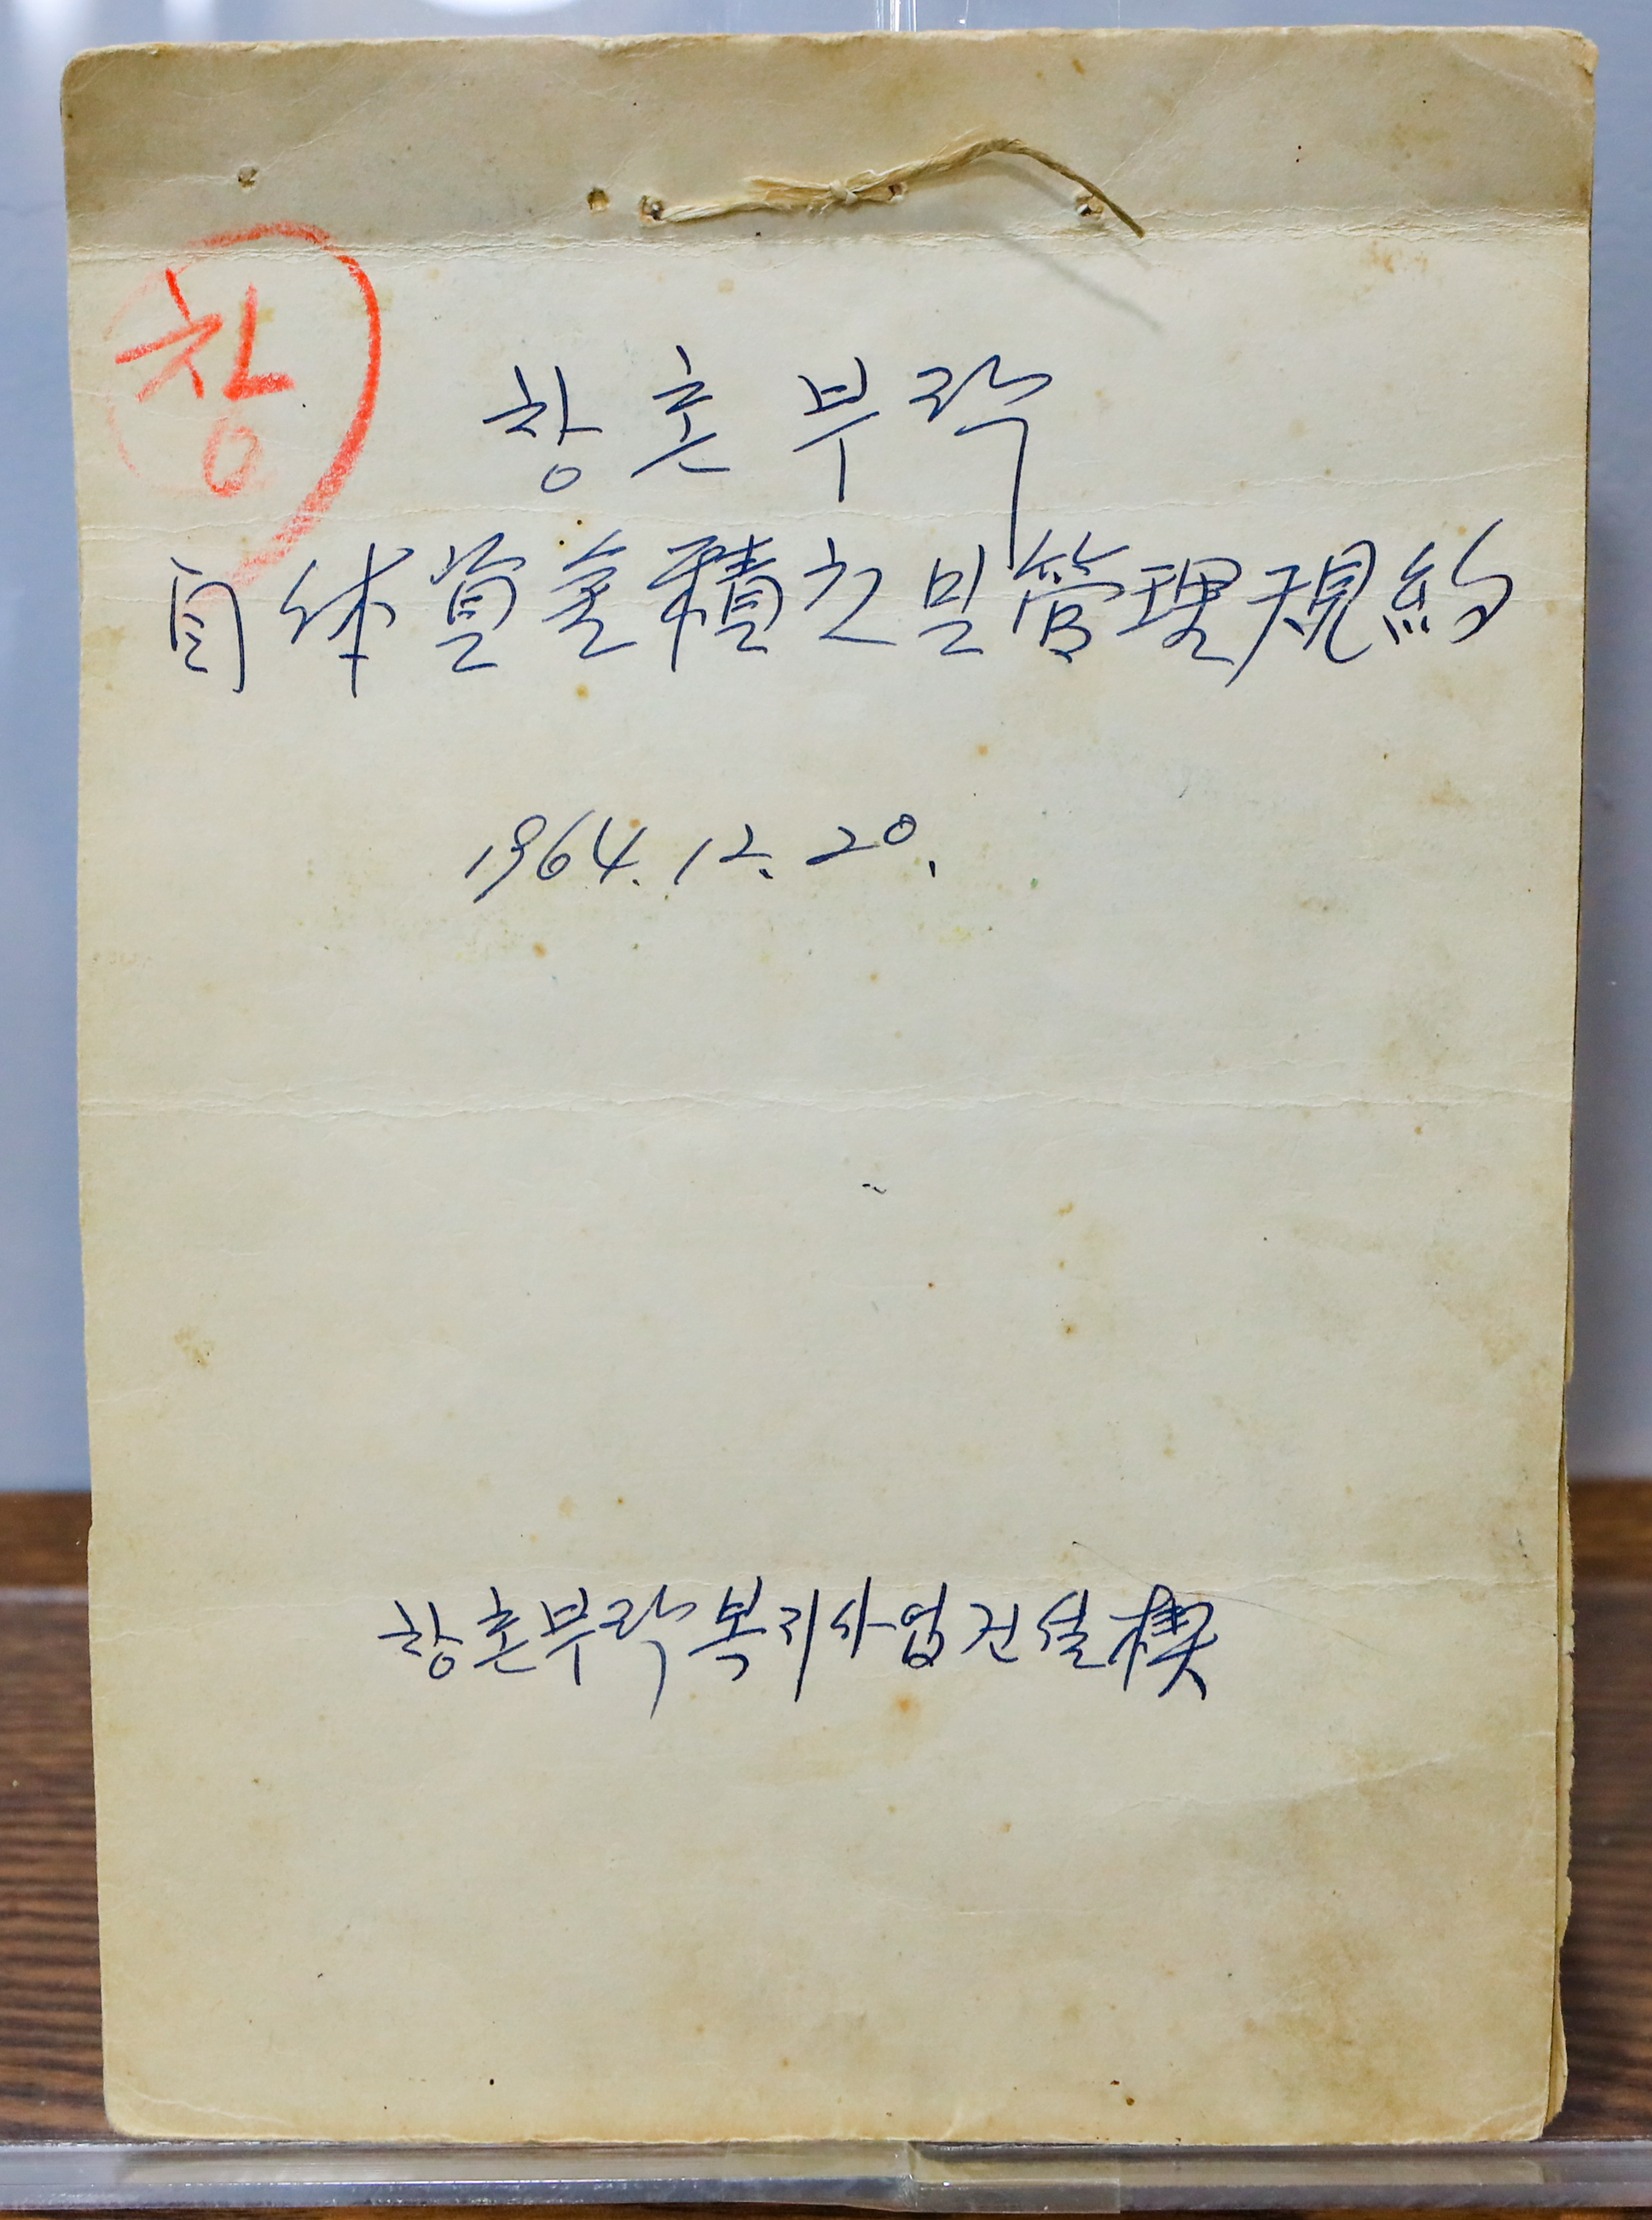 창
창촌부락
自体資金積立및管理規約
1964. 12. 20.
창촌부락복지사업건설楔